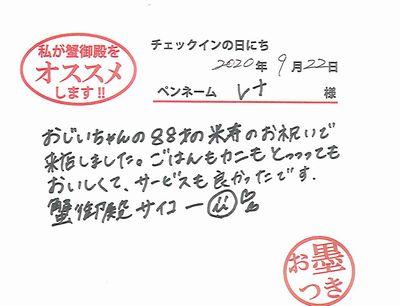 私が蟹御殿を
オススメ
します!!
チェックインの日にち
2020年 9月22日
ペンネーム レナ 様
おじいちゃんの88才の米寿のお祝いで
来館しました。ごはんもカニもとっっっても
おいしくて、サービスも良かったです.
蟹御殿サイコー
お墨
つき